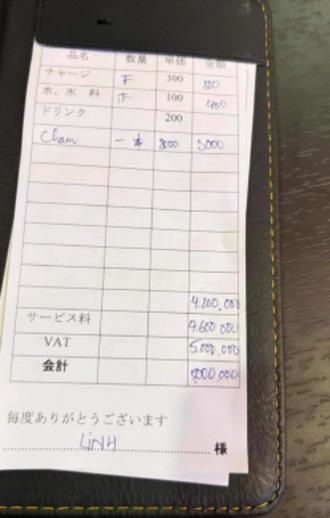 品名 数量 単価 金額
チャージ 300
水、氷 料 100 400
ドリンク 200
Cham 一本 3000 3000
4.200.000
サービス料 4.600.000
VAT 5.000.000
会計 000.000
毎度ありがとうございます
LiNH 様